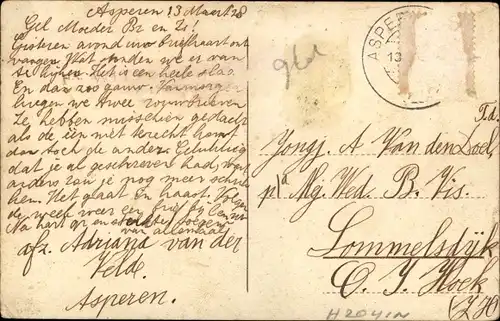 Asperen 13 Maart 28
Gel Moeder Br en Zr.
Gisteren avond uw briefkaart ont
vangen. Wat ... we er van
te lijken. Het is een heele slag
En dan zoo gauw. Van morgen
kregen we twee rouwbrieven
Ze hebben misschien gedacht
als de een niet terecht komt
dan toch de ander. Gelukkig
dat je al geschreven had, want
anders zou je nog meer schrik
ken. Het gaat en haart. Volgen
de week weer een brief bij leven
Na hart gr en
van allemaal
afz. Adriana van der
Velde.
Asperen.
961
ASPEREN
13
T.d.
Jongj. A Van den Doel
p/a Mej. Wed. B. Vis.
Sommelsdijk
O. J. Hoek
(Z.H.)
H204IN